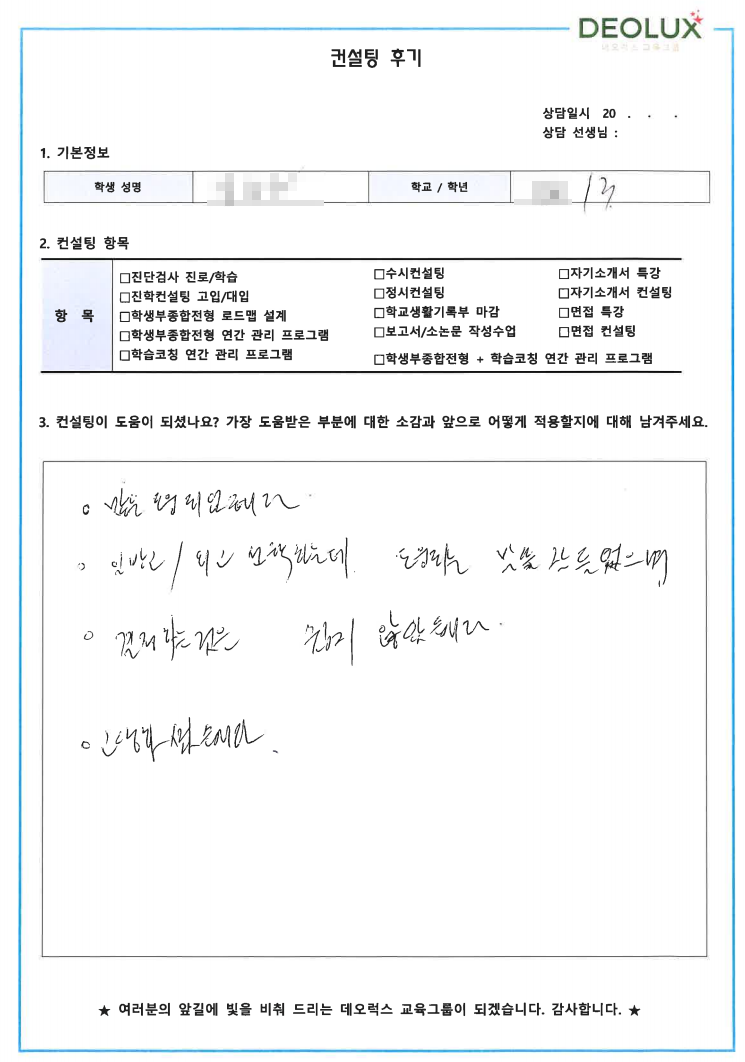 DEOLUX
데오럭스 교육그룹
컨설팅 후기
상담일시 20 . . .
상담 선생님 :
1. 기본정보
학생 성명
학교 / 학년
/3
2. 컨설팅 항목
항 목
□진단검사 진로/학습
□진학컨설팅 고입/대입
□학생부종합전형 로드맵 설계
□학생부종합전형 연간 관리 프로그램
□학습코칭 연간 관리 프로그램
□수시컨설팅
□정시컨설팅
□학교생활기록부 마감
□보고서/소논문 작성수업
□학생부종합전형 + 학습코칭 연간 관리 프로그램
□자기소개서 특강
□자기소개서 컨설팅
□면접 특강
□면접 컨설팅
3. 컨설팅이 도움이 되셨나요? 가장 도움받은 부분에 대한 소감과 앞으로 어떻게 적용할지에 대해 남겨주세요.
많은
일반고 / 외고 선택하는데
결정하는 것은 쉽지 않았습니다.
★ 여러분의 앞길에 빛을 비춰 드리는 데오럭스 교육그룹이 되겠습니다. 감사합니다. ★